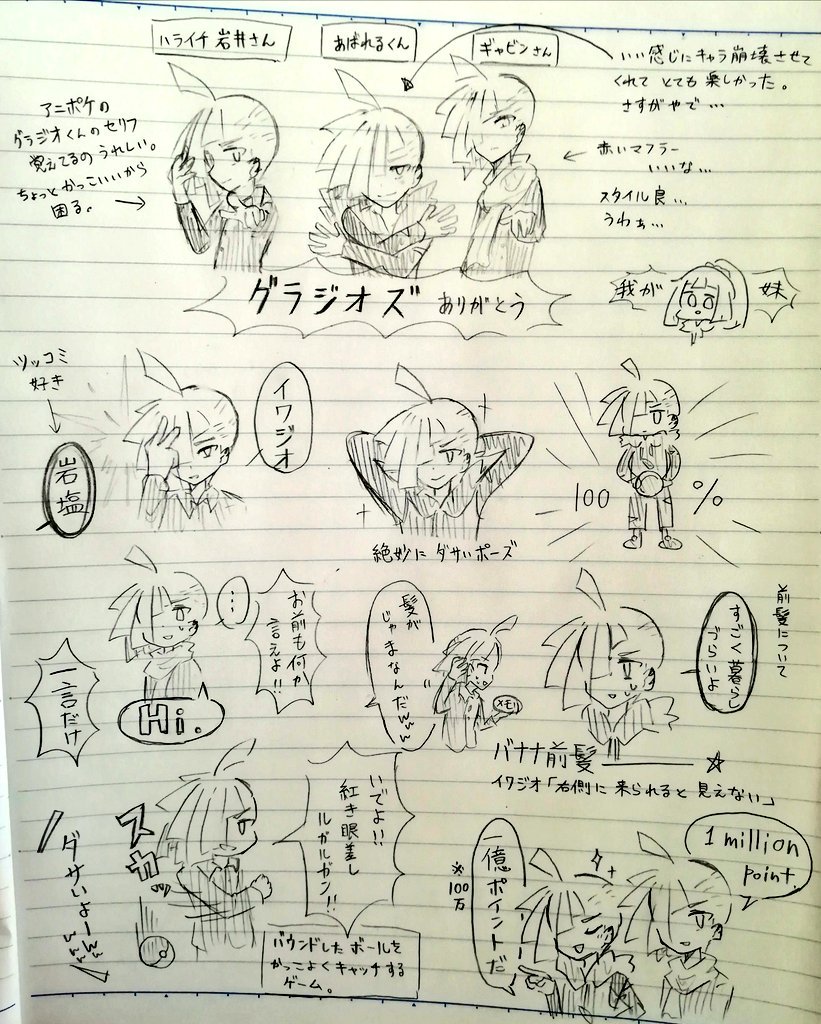 ハライチ 岩井さん
あばれるくん
ギャビンさん
いい感じにキャラ崩壊させて
くれて とても楽しかった。
さすがやで…
アニポケの
グラジオくんのセリフ
覚えてるのうれしい。
ちょっとかっこいいから
困る。
赤いマフラー
いいな…
スタイル良…
うわぁ…
グラジオズ ありがとう
我が
妹
ツッコミ
好き
岩塩
イワジオ
絶妙に ダサいポーズ
100 %
…
お前も何か
言えよ!!
一言だけ
Hi.
髪が
じゃまなんだwww
メモリ
前髪について
すごく暮らし
づらいよ
バナナ前髪 ☆
イワジオ「右側に来られると見えない」
いでよ!!
紅き眼差し
ルガルガン!!
スカッ
ダサいよーwww
バウンドしたボールを
かっこよくキャッチする
ゲーム。
一億ポイントだ
※100万
1 million
point.